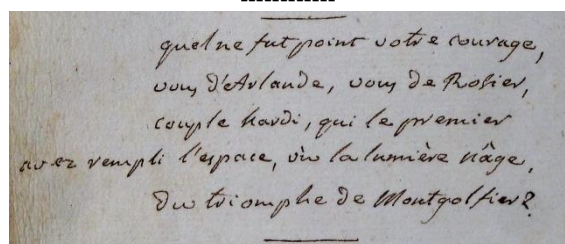 quel ne fut point votre courage,
vous d'Arlande, vous de Rosier,
couple hardi, qui le premier
avez rempli l'espace, où la lumière nâge,
Du triomphe de Montgolfier?